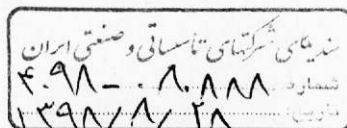 سندیکای شرکتهای تأسیساتی و صنعتی ایران
شماره: ۴۰۹۸-۰۸۰۸۸۸
تاریخ: ۱۳۹۸/۸/۲۸